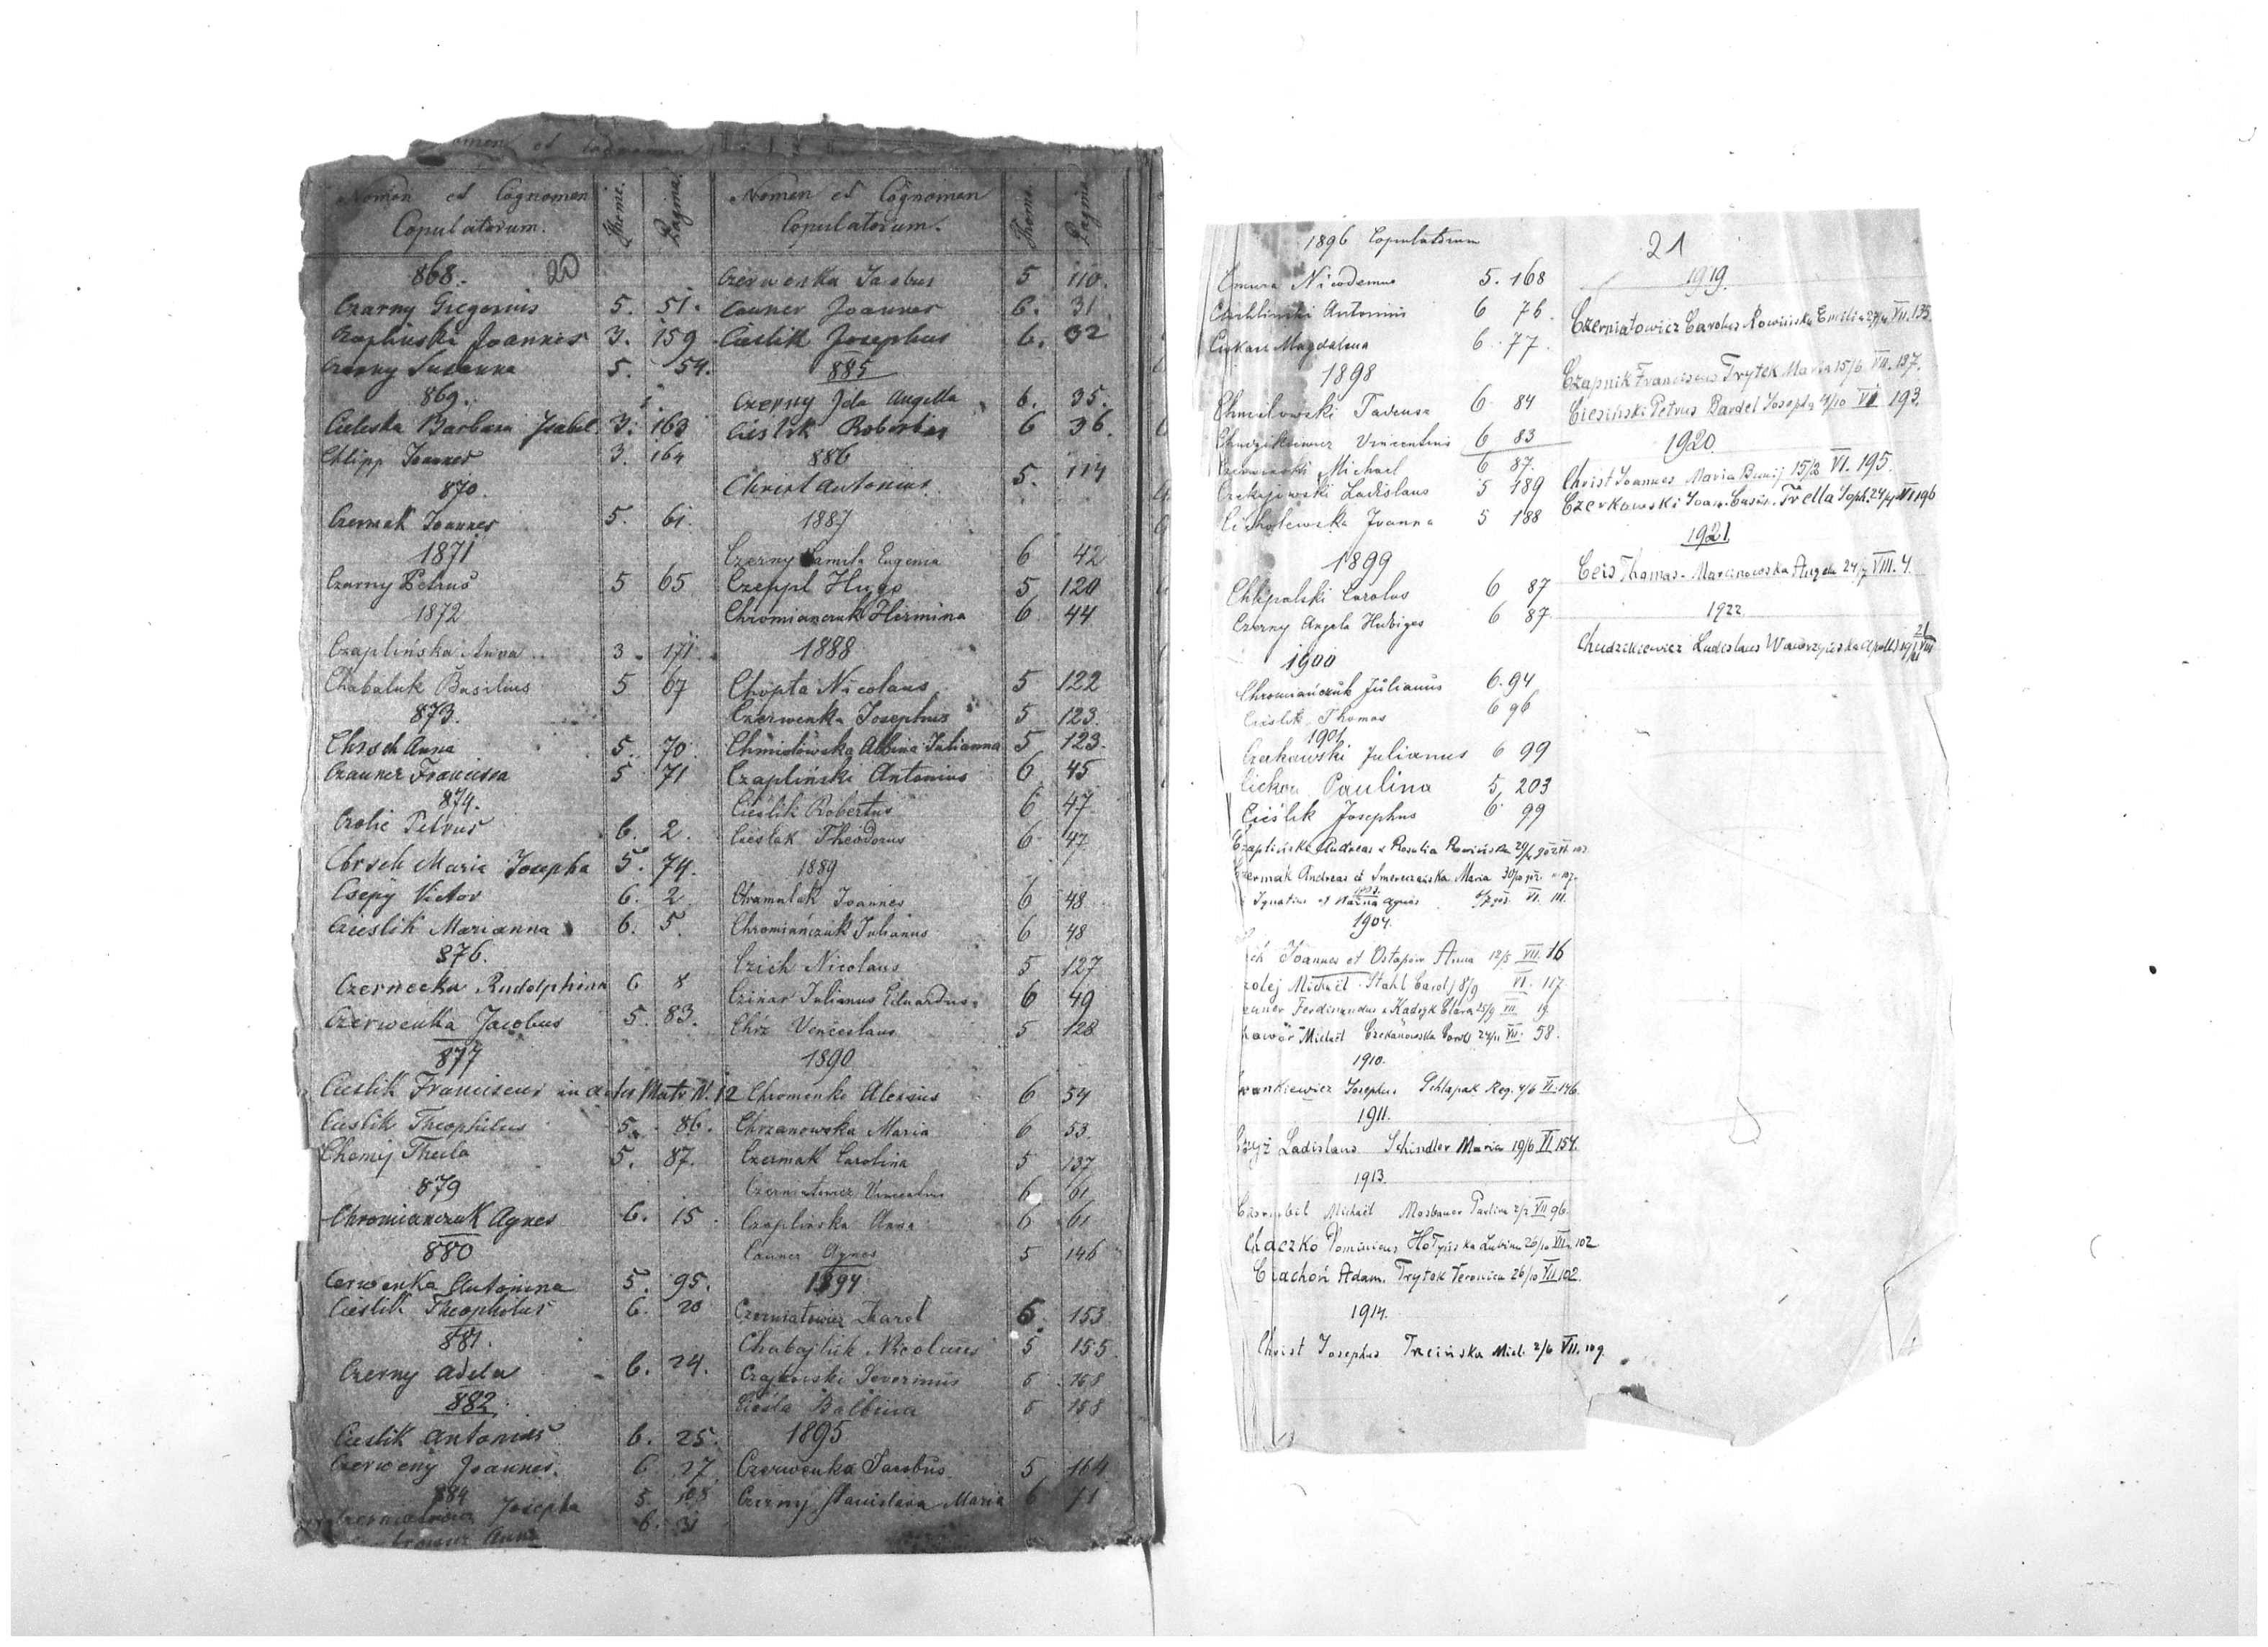 Nomen et Cognomen
Copulatorum.
Thome.
Pagina.
868. 20
Czarny Gregorius 5. 51.
Czaplinski Joannes 3. 159
Czarny Susanna 5. 54.
869.
Cieleska Barbara Isabel. 3. 163
Chlipp Joannes 3. 164
870.
Czermak Joannes 5. 61
1871
Czarny Petrus 5 65
1872
Czaplińska Anna 3. 171.
Chabaluk Basilius 5 67
873.
Chrsch Anna 5. 70.
Czauner Francisca 5 71
874.
Czolic Petrus 6. 2.
Chrsch Maria Josepha 5. 74.
Csepy Victor 6. 2.
Cieslik Marianna 6. 5.
876.
Czernecka Rudolphina 6 8
Czerwenka Jacobus 5. 83.
877
Cieslik Franciscus in actis Matr N. 12
Cieslik Theophilus 5. 86.
Chomij Thecla 5. 87.
879
Chromianczuk Agnes 6. 15.
880
Cerwenka Antonina 5. 95.
Cieslik Theophilus 6. 20
881.
Czerny Adela 6. 24.
882.
Cieslik Antonius 6. 25.
Czerweny Joannes. 6 27
884
Josepha 5. 108
Anna 6. 31
Nomen et Cognomen
Copulatorum.
Thome.
Pagina
Czerwenka Jacobus 5 110.
Cauner Joannes 6. 31
Cieslik Josephus 6. 32
885
Czerny Ida Angella 6. 35.
Cieslik Robertus 6 36.
886
Christ Antonius 5. 114
1887
Czerny Camila Eugenia 6 42
Czeppl Hugo 5 120
Chromianczuk Hermina 6 44
1888
Chopta Nicolaus 5 122
Czerwenka Josephus 5 123.
Chmielowska Albina Julianna 5 123.
Czapliński Antonius 6 45
Cieślik Robertus 6 47
Cieslak Theodorus 6 47
1889
Chramulak Joannes 6 48
Chromiańczuk Julianus 6 48
Czich Nicolaus 5 127
Czinar Julianus Eduardus 6 49
Chrz Venceslaus 5 128
1890
Chromenko Alexius 6 54
Chrzanowska Maria 6 53.
Czermak Carolina 5 137
Czerniatowicz Vincentius 6 61
Czaplinska Anna 6 61
Cauner Agnes 5 146
1894
Czerniatowicz Karol 6. 153
Chabajluk Nicolaus 5 155.
Czajkowski Severinus 5 158
Ciesla Balbina 5 158
1895
Czerwenka Jacobus 5 164
Czerny Stanislava Maria 6 71
1896 Copulatorum
Cmura Nicodemus 5. 168
Antonius 6 76.
Magdalena 6. 77.
1898
Chmilowski Tadeusz 6 84
Chudzikiewicz Vincentius 6 83
Michael 6 87.
Ladislaus 5 189
Cicholewska Joanna 5 188
1899
Chlipalski Carolus 6 87
Czerny Angela Hedviges 6 87.
1900
Chromiańczuk Julianus 6.94
Cieslik Thomas 6 96
1901
Czerkawski Julianus 6 99
Cickon Paulina 5, 203
Cieślik Josephus 6 99
Czapliński Andreas &amp; Rosalia
Czermak Andreas et Maria 30/10
Ignatius et Agnes VI. 111.
1904.
Joannes et Ostapów Anna 12/5 VII. 16
Michaël Stahl Carol 8/9 VI. 117.
Ferdinandus &amp; Kadryk Clara 25/9 VII 19
Michaël Czekanowska Carol 24/11 VII. 58.
1910.
Iwankiewicz Josephus Schlapak Reg. 4/6 VI. 146.
1911.
Czyż Ladislaus Schindler Maria 19/6 VI 154.
1913.
Michaël Mosbauer Paulina 2/2 VII 96.
Chaczko Dominicus Hołyńska Ludvina 26/10 VII. 102
Czachoń Adam. Trytek Veronica 26/10 VII 102.
1914.
Christ Josephus Trcińska Mich. 2/6 VII. 109.
21
1919.
Czerniatowicz Carolus Nowińska Emilia 27/4 VII. 135.
Czapnik Franciscus Trytek Maria 15/6 VII. 137.
Ciesiński Petrus Bardel Josepha 4/10 VI 193.
1920.
Christ Joannes Maria 15/2 VI. 195.
Czerkawski Joan. Casim. Trella Soph. 24/4 VI 196
1921.
Ceis Thomas. Marcinowska Angela 24/7 VIII. 4.
1922
Chudzikiewicz Ladislaus Wawrzycka